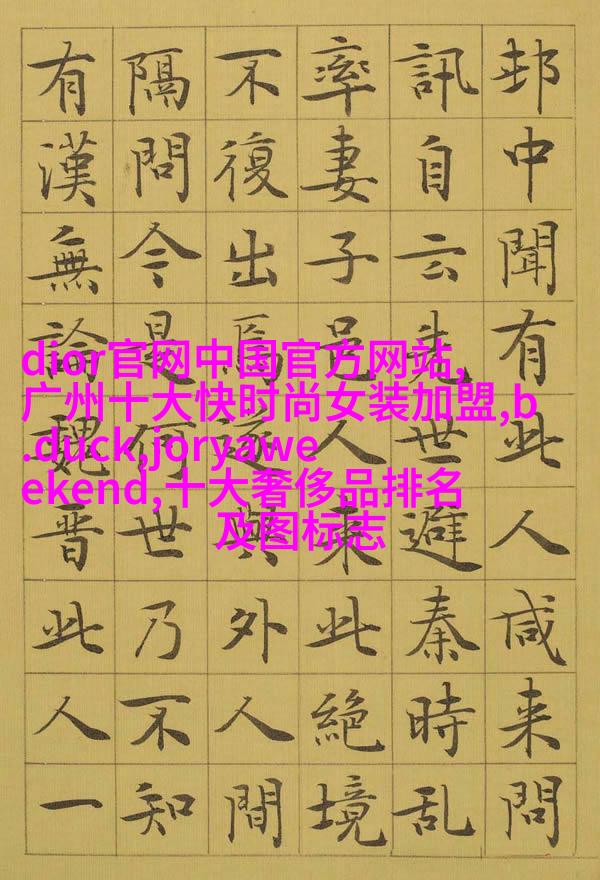 邨中聞有此人咸来問
訊自云先世避秦時乱
率妻子邑人来此絶境
不復出焉遂與外人間
隔問今是何世乃不知
有漢無論魏晋此人一
dior官网中国官方网站,
广州十大快时尚女装加盟,b
.duck,joryawe
ekend,十大奢侈品排名
及图标志